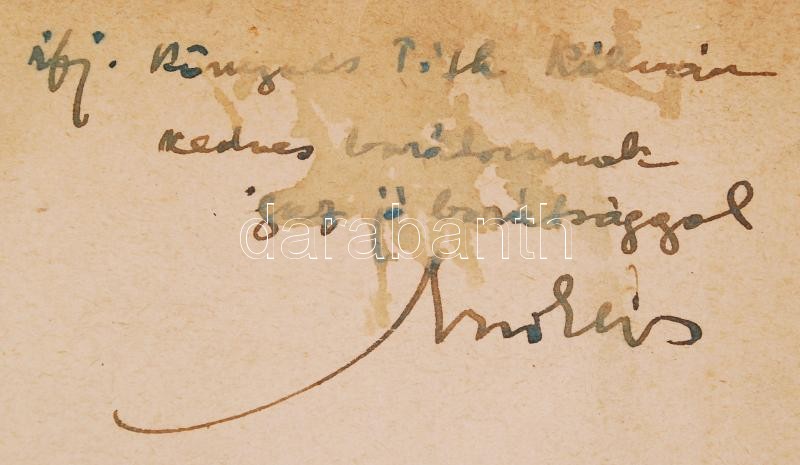 ifj. Könyves Tóth Kálmán
kedves barátomnak
igaz jó barátsággal
darabanth